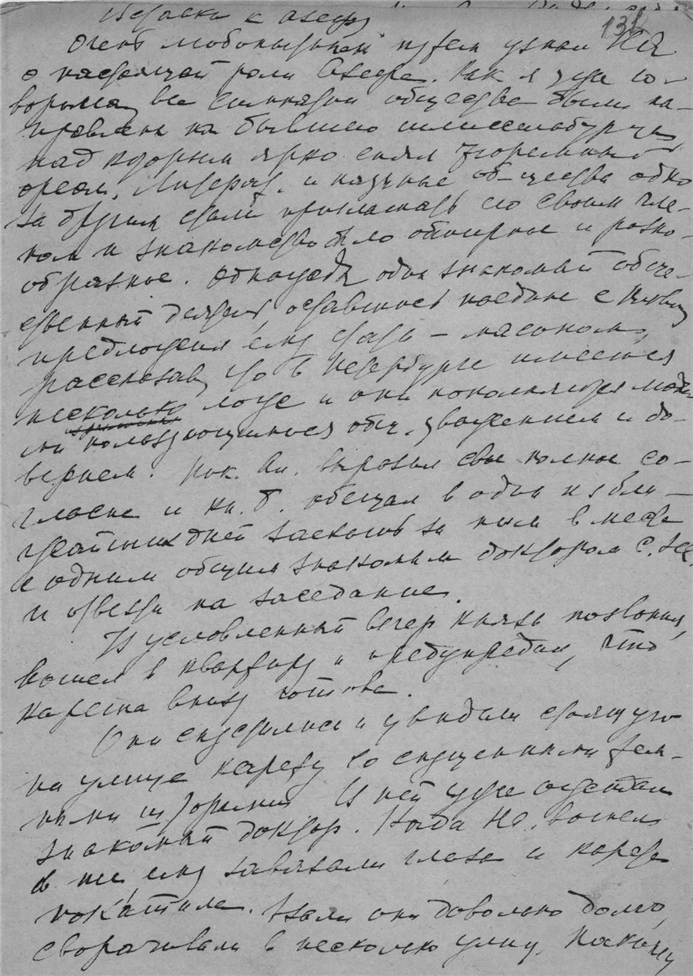 138
Очень любопытный путем узнал Н.А.
о настоящей роли Азефа. Как я уже го-
ворила, все симпатии общества были на-
правлены на бывшего шлиссельбуржца
над которым ярко сиял тюремный
ореол. Литерат. и научные об-щества одно
за другим стали приглашать его своим чле-
ном и знакомство было обширное и разно-
образное. Однажды один знакомый обще-
ственный деятель оставшись наедине с
предложил ему стать – масоном,
рассказав, что в Петербурге имеется
несколько лож и они пополняются
пользующимися общ. уважением и до-
верием. Ник. Ал. выразил свое полное со-
гласие и кн. Б. обещал в один из бли-
жайших дней заехать за ним вместе
с одним общим знакомым доктором
и отвезти на заседание.
В условленный вечер князь позвонил,
вошел в квартиру и предупредил, что
карета внизу готова.
Они спустились и увидали стоящую
на улице карету со спущенными тем-
ными шторами. В ней уже сидел
знакомый доктор. Когда Н.А. вошел
в нее ему завязали глаза и карета
покатила. Ехали они довольно долго,
сворачивали в несколько улиц.